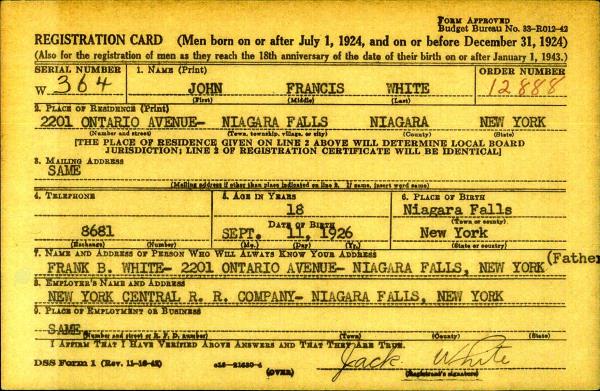 FORM APPROVED
Budget Bureau No. 33-R012-42
REGISTRATION CARD (Men born on or after July 1, 1924, and on or before December 31, 1924)
(Also for the registration of men as they reach the 18th anniversary of the date of their birth on or after January 1, 1943.)
SERIAL NUMBER 1. NAME (Print) ORDER NUMBER
W 364 JOHN FRANCIS WHITE 12888
(First) (Middle) (Last)
2. PLACE OF RESIDENCE (Print)
2201 ONTARIO AVENUE- NIAGARA FALLS NIAGARA NEW YORK
(Number and street) (Town, township, village, or city) (County) (State)
[THE PLACE OF RESIDENCE GIVEN ON LINE 2 ABOVE WILL DETERMINE LOCAL BOARD
JURISDICTION; LINE 2 OF REGISTRATION CERTIFICATE WILL BE IDENTICAL]
3. MAILING ADDRESS
SAME
[Mailing address if other than place indicated on line 2. If same, insert word same]
4. TELEPHONE 5. AGE IN YEARS 6. PLACE OF BIRTH
18 Niagara Falls
DATE OF BIRTH (Town or county)
8681 SEPT. 11 1926 New York
(Exchange) (Number) (Mo.) (Day) (Yr.) (State or country)
7. NAME AND ADDRESS OF PERSON WHO WILL ALWAYS KNOW YOUR ADDRESS
FRANK B. WHITE- 2201 ONTARIO AVENUE- NIAGARA FALLS, NEW YORK (Father
8. EMPLOYER'S NAME AND ADDRESS
NEW YORK CENTRAL R. R. COMPANY- NIAGARA FALLS, NEW YORK
9. PLACE OF EMPLOYMENT OR BUSINESS
SAME
(Number and street or R. F. D. number) (Town) (County) (State)
I AFFIRM THAT I HAVE VERIFIED ABOVE ANSWERS AND THAT THEY ARE TRUE.
DSS Form 1 (Rev. 11-16-42) (OVER) Jack White
(Registrant's signature)